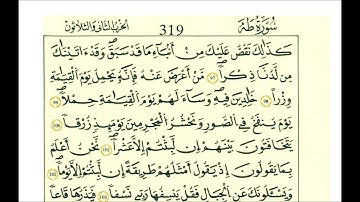 سُورَةُ طه 319 الحزب الثاني والثلاثون
كَذَٰلِكَ نَقُصُّ عَلَيْكَ مِنْ أَنۢبَآءِ مَا قَدْ سَبَقَ وَقَدْ ءَاتَيْنَٰكَ
مِن لَّدُنَّا ذِكْرًا ٩٧ مَّنْ أَعْرَضَ عَنْهُ فَإِنَّهُۥ يَحْمِلُ يَوْمَ ٱلْقِيَٰمَةِ
وِزْرًا ٩٨ خَٰلِدِينَ فِيهِ وَسَآءَ لَهُمْ يَوْمَ ٱلْقِيَٰمَةِ حِمْلًا ٩٩
يَوْمَ يُنفَخُ فِى ٱلصُّورِ وَنَحْشُرُ ٱلْمُجْرِمِينَ يَوْمَئِذٍ زُرْقًا ١٠٠
يَتَخَٰفَتُونَ بَيْنَهُمْ إِن لَّبِثْتُمْ إِلَّا عَشْرًا ١٠١ نَّحْنُ أَعْلَمُ
بِمَا يَقُولُونَ إِذْ يَقُولُ أَمْثَلُهُمْ طَرِيقَةً إِن لَّبِثْتُمْ إِلَّا يَوْمًا ١٠٢
وَيَسْـَٔلُونَكَ عَنِ ٱلْجِبَالِ فَقُلْ يَنسِفُهَا رَبِّى نَسْفًا ١٠٣ فَيَذَرُهَا قَاعًا